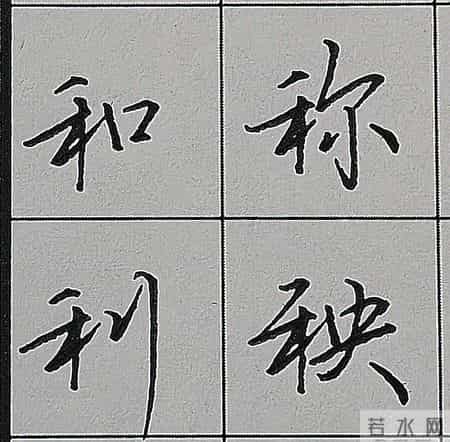 和 称
利 秧
若水网